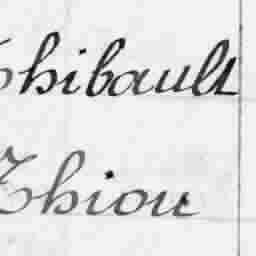 Thibault
Thiou